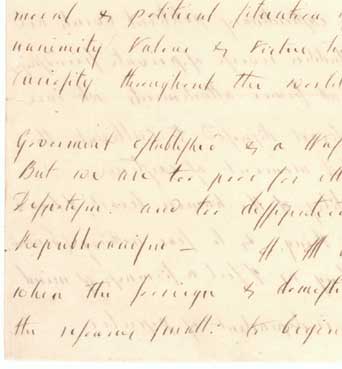 moral & political situation
unanimity Valour & Virtue
Curiosity throughout the world
Goverment established & a
But we are too poor for
Despotism. and too dissipated
Republicanism —
when the foreign &
the resources small. to begin